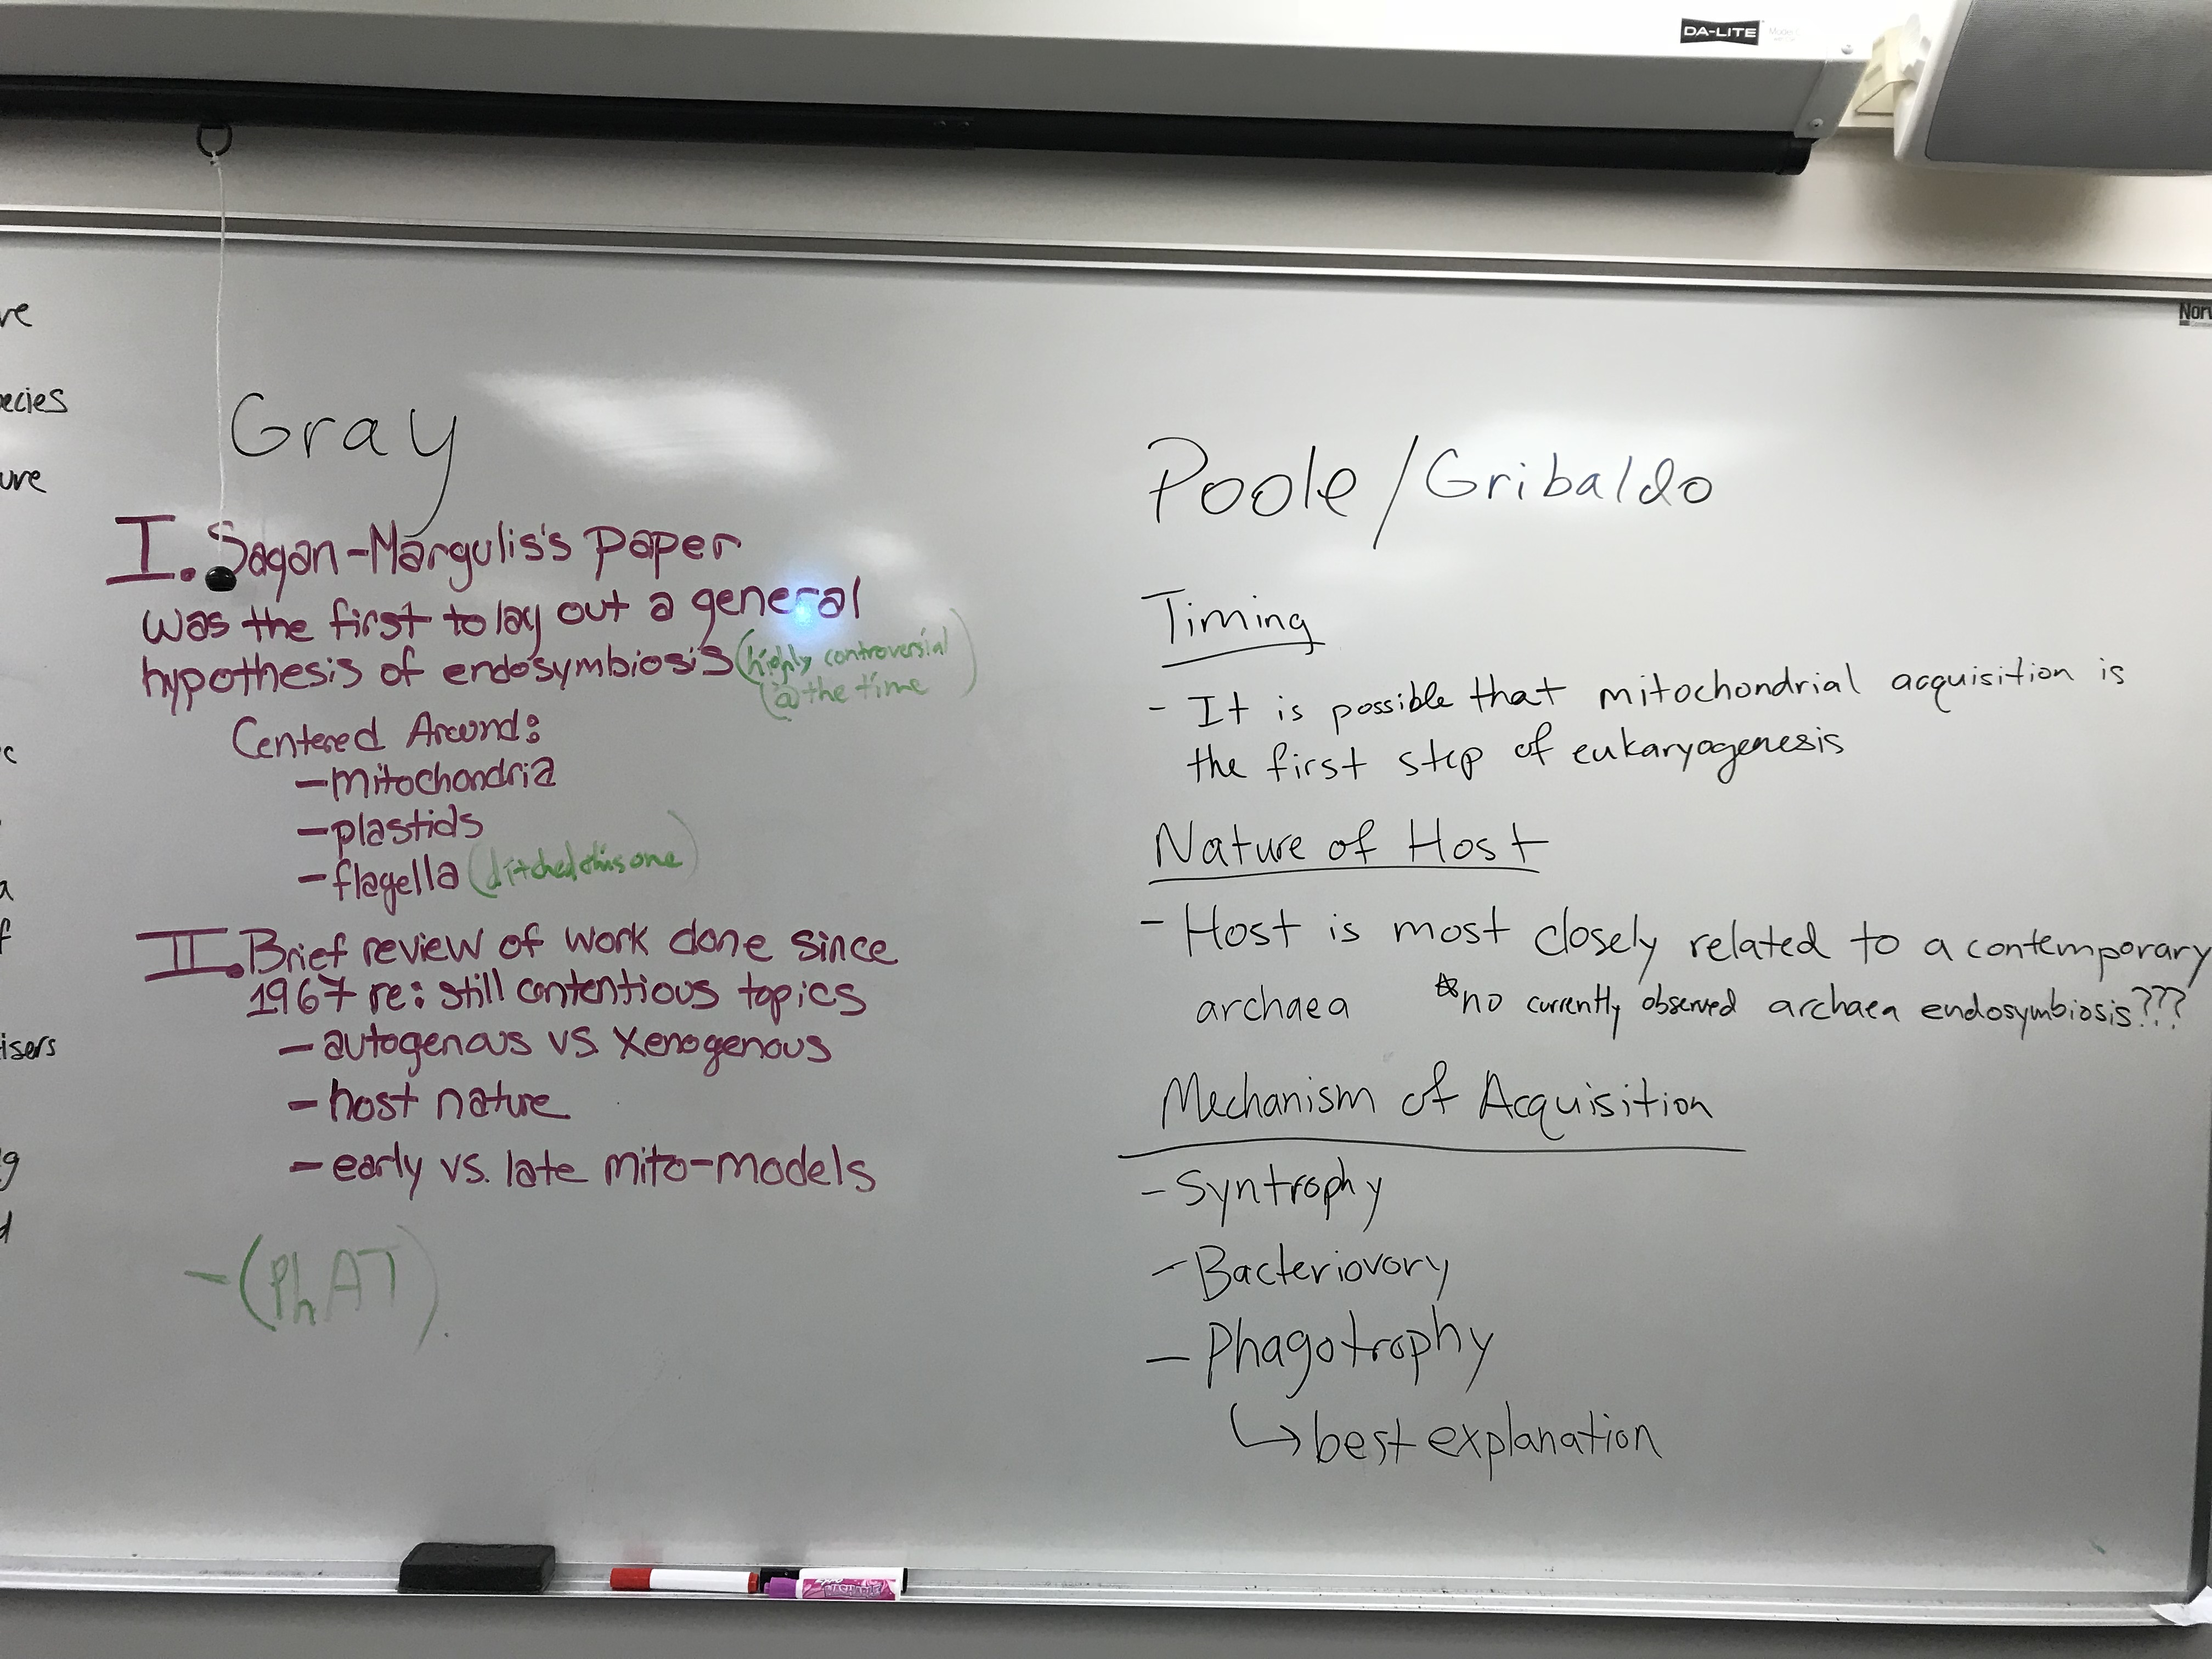 DA-LITE
re
ecies
ure
c
a
f
isers
g
d
Gray
I. Sagan-Margulis's paper
was the first to lay out a general
hypothesis of endosymbiosis (highly controversial
@ the time)
Centered Around:
- mitochondria
- plastids
- flagella (ditched this one)
II. Brief review of work done since
1967 re: still contentious topics
- autogenous vs. xenogenous
- host nature
- early vs. late mito-models
- (PhAT)
Poole/Gribaldo
Timing
- It is possible that mitochondrial acquisition is
the first step of eukaryogenesis
Nature of Host
- Host is most closely related to a contemporary
archaea *no currently observed archaea endosymbiosis???
Mechanism of Acquisition
- Syntrophy
- Bacteriovory
- Phagotrophy
↳ best explanation